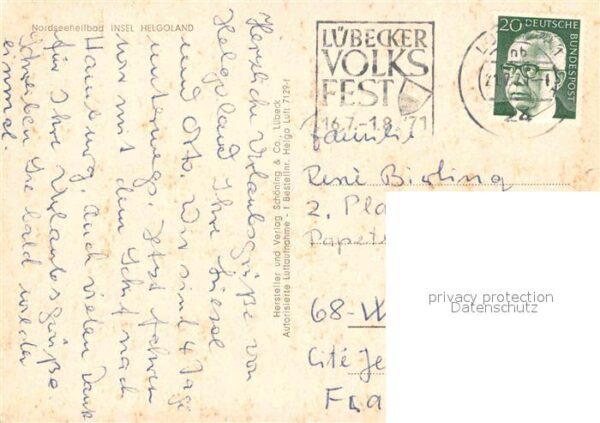 Nordseeheilbad INSEL HELGOLAND
Herzliche Urlaubsgrüße von
Helgoland Ihre Liesel
und Otto. Wir sind 4 Tage
unterwegs. Jetzt fahren
wir mit dem Schiff nach
Hamburg. Auch vielen Dank
für Ihre Urlaubsgrüße.
Schreiben Sie bald wieder
einmal.
Hersteller und Verlag Schöning & Co., Lübeck
Autorisierte Luftaufnahme - 1 Bestellnr. Helgo Luft 7129-1
LÜBECKER
VOLKS
FEST
16.7.-1.8.'71
20 DEUTSCHE
BUNDESPOST
24
Familie
René
2. Pla
Papet
68-W
Cité Je
Fra
privacy protection
Datenschutz